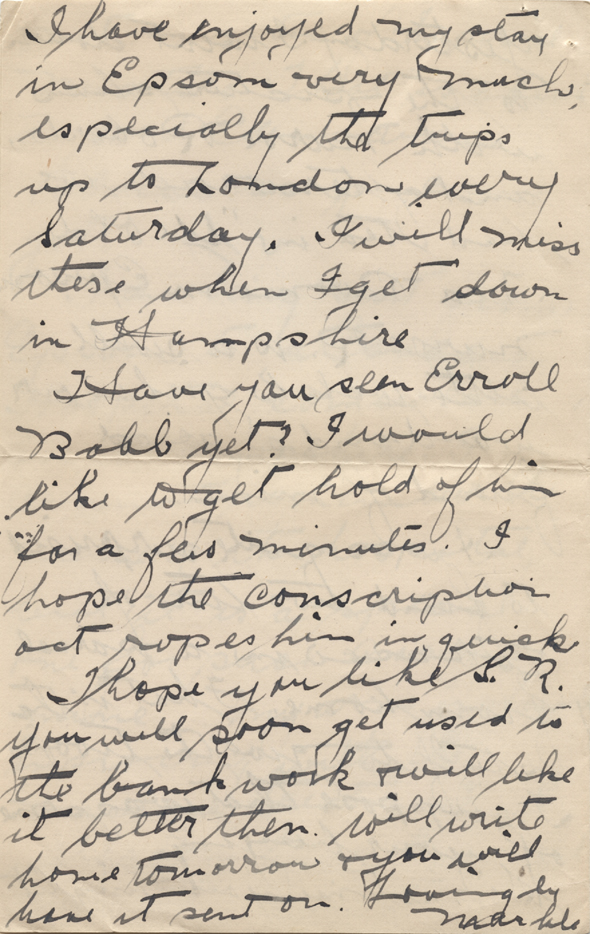 I have enjoyed my stay
in Epsom very much,
especially the trips
up to London every
Saturday. I will miss
these when I get down
in Hampshire
Have you seen Erroll
Babb yet? I would
like to get hold of him
for a few minutes. I
hope the conscription
act ropes him in quick
I hope you like S. R.
you will soon get used to
the bank work & will like
it better then. will write
home tomorrow & you will
have it sent on. Lovingly